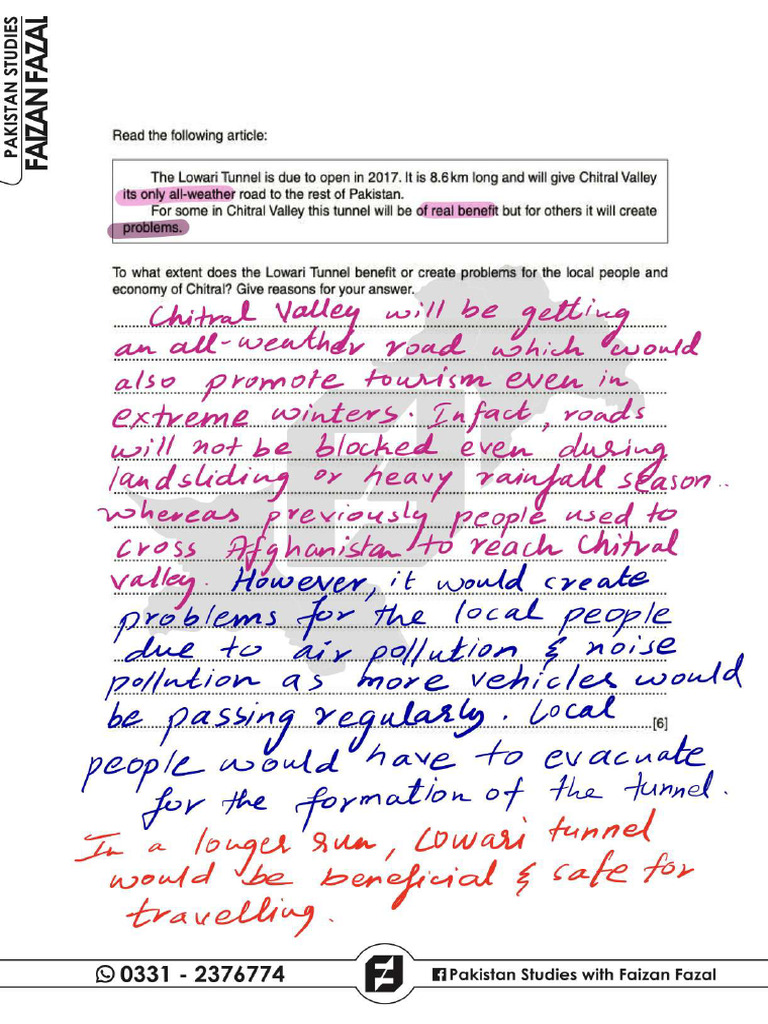 PAKISTAN STUDIES
FAIZAN FAZAL
Read the following article:
The Lowari Tunnel is due to open in 2017. It is 8.6 km long and will give Chitral Valley
its only all-weather road to the rest of Pakistan.
For some in Chitral Valley this tunnel will be of real benefit but for others it will create
problems.
To what extent does the Lowari Tunnel benefit or create problems for the local people and
economy of Chitral? Give reasons for your answer.
Chitral Valley will be getting
an all-weather road which would
also promote tourism even in
extreme winters. Infact, roads
will not be blocked even during
landsliding or heavy rainfall season.
whereas previously people used to
cross Afghanistan to reach Chitral
valley. However, it would create
problems for the local people
due to air pollution & noise
pollution as more vehicles would
be passing regularly. Local
[6]
people would have to evacuate
for the formation of the tunnel.
In a longer run, Lowari tunnel
would be beneficial & safe for
travelling.
0331 - 2376774
Pakistan Studies with Faizan Fazal